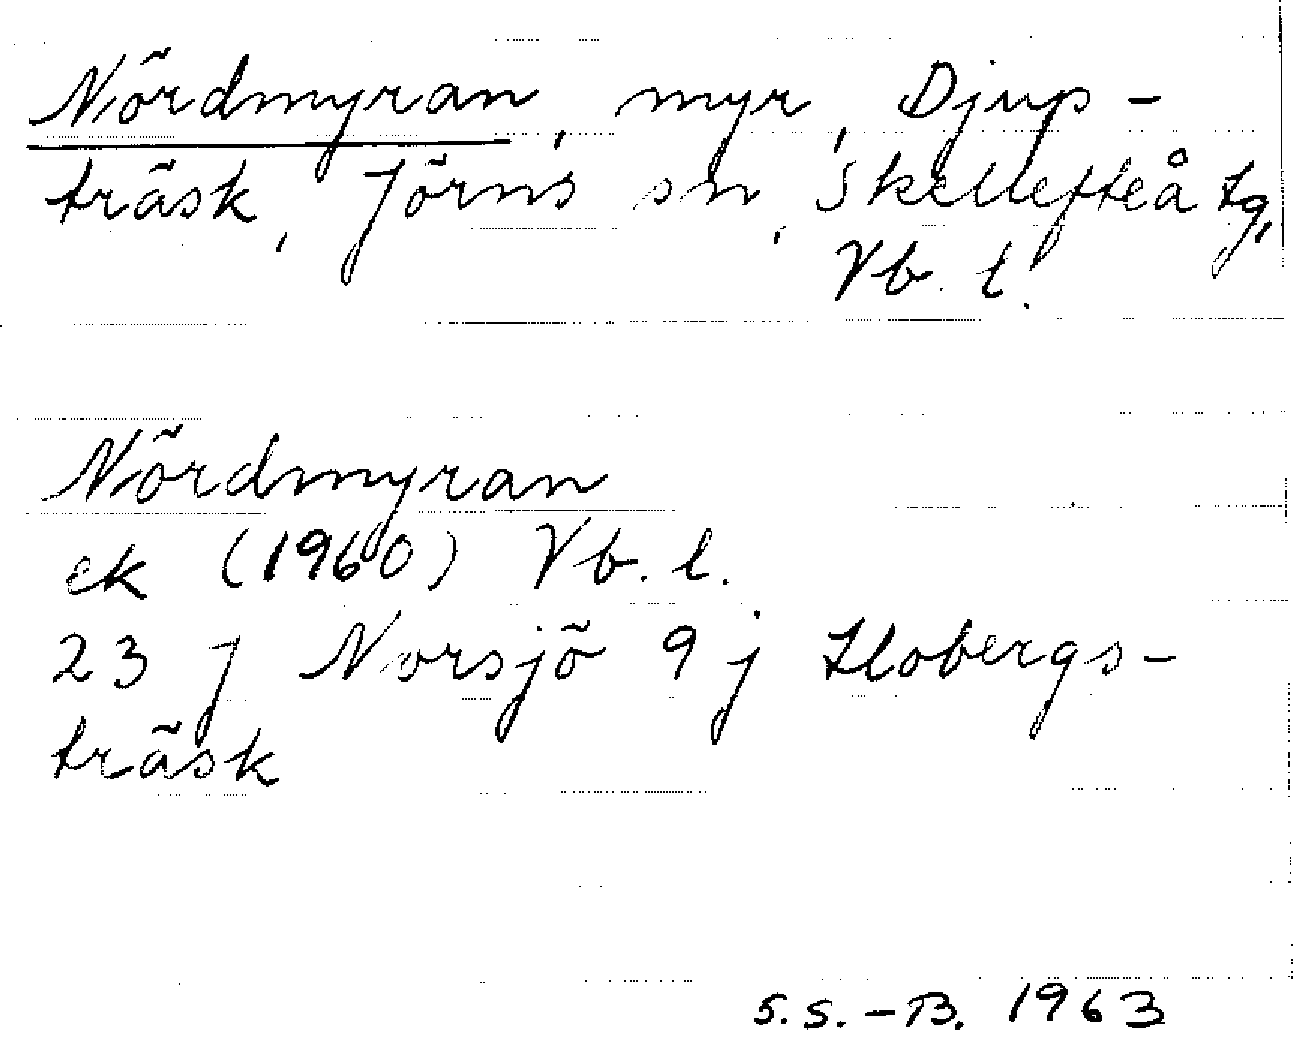 Nördmyran, myr, Djup-
träsk, Jörns sn, Skellefteå tg,
Vb. l.
Nördmyran
ek (1960) Vb. l.
23 J Norsjö 9 j Flobergs-
träsk
S.S.-B. 1963